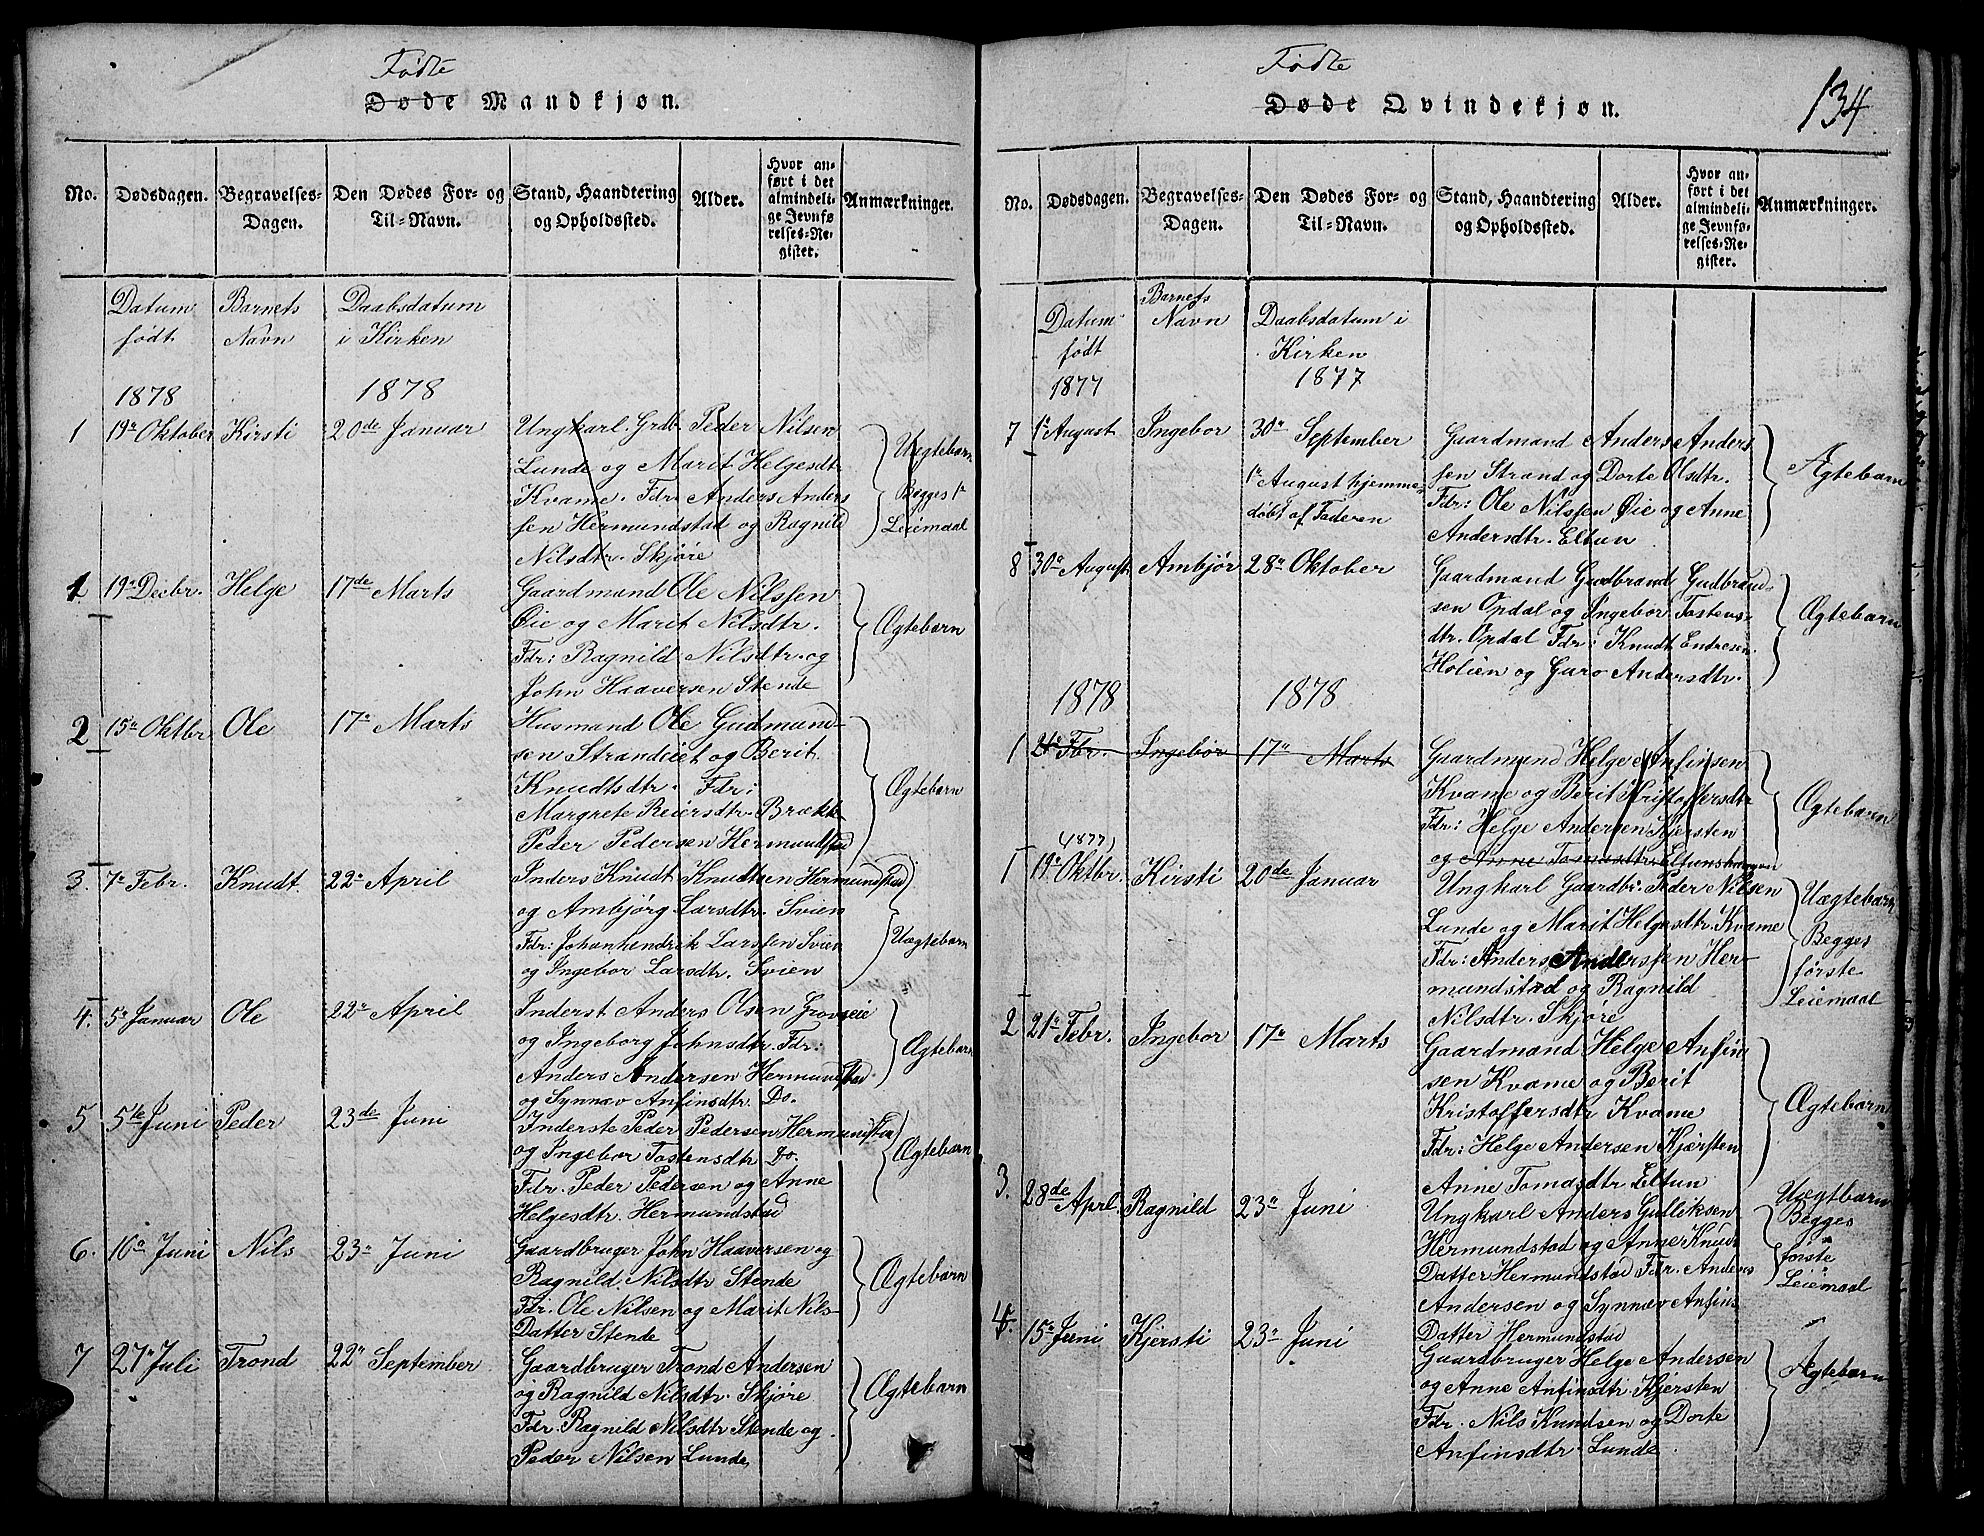 Fødte
Døde Mandkjøn.
No.
Dødsdagen.
Begravelses-
Dagen.
Den Dødes For- og
Til-Navn.
Stand, Haandtering
og Opholdssted.
Alder.
Hvor an-
ført i det
almindeli-
ge Jevnfø
relses-Re-
gister.
Anmærkninger.
Datum
født
1878
Barnets
Navn
Daabsdatum
i Kirken
1878
1 19de Oktober Kirsti 20de Januar
Ungkarl. Grdb. Peder Nilsen
Lunde og Marit Helgesdtr.
Kvame. Fdr. Anders Anders
sen Hermundstad og Ragnild
Nilsdtr. Skjøre
Uægtebarn
Begges 1ste
Leiemaal
1 19de Decbr. Helge 17de Marts
Gaardmand Ole Nilssen
Øie og Marit Nilsdtr.
Fdr: Ragnild Nilsdtr. og
John Haaversen Stende
Ægtebarn
2 15de Oktbr Ole 17de Marts
Husmand Ole Gudmund-
sen Strandeiet og Berit
Knudtsdtr. Fdr:
Margrete Reiersdtr. Brække
Peder Pedersen Hermundstad
Ægtebarn
3. 7de Febr. Knudt. 22de April
Inders Knudt Knudtsen Hermundstad
og Ambjørg Larsdtr. Svien
Fdr: Johanhendrik Larssen Svien
og Ingebor Larsdtr. Svien
Uægtebarn
4. 5de Januar Ole 22de April
Inderst Anders Olsen Grovseie
og Ingeborg Johnsdtr. Fdr:
Anders Andersen Hermundstad.
og Synnøv Anfinsdtr. Do.
Ægtebarn
5 5te Juni Peder 23de Juni
Inderste Peder Pedersen Hermundstad
og Ingebor Tostensdtr Do.
Fdr. Peder Pedersen og Anne
Helgesdtr. Hermundstad
Ægtebarn
6. 10de Juni Nils 23de Juni
Gaardbruger John Haaversen og
Ragnild Nilsdtr Stende
Fdr. Ole Nilsen og Marit Nils-
Datter Stende
Ægtebarn
7 27de Juli Trond 22de September
Gaardbruger Trond Andersen
og Ragnild Nilsdtr. Skjøre
Fdr. Ragnild Nilsdtr Stende og
Peder Nilsen Lunde
Ægtebarn
Fødte
Døde Qvindekjøn.
134
No.
Dødsdagen.
Begravelses-
Dagen.
Den Dødes For- og
Til-Navn.
Stand, Haandtering
og Opholdssted.
Alder.
Hvor an-
ført i det
almindeli-
ge Jevnfø-
relses-Re-
gister.
Anmærkninger.
Datum
født
1877
Barnets
Navn
Daabsdatum i
Kirken
1877
7 1ste August Ingebor 30de September
1ste August hjemme-
døbt af Faderen
Gaardmand Anders Anders
sen Strand og Dorte Olsdtr.
Fdr: Ole Nilssen Øie og Anne
Andersdtr. Eltun
Ægtebarn
8 30de August Ambjør 28de Oktober
Gaardmand Gudbrand Gudbrand-
sen Opdal og Ingebor Tostens-
dtr. Opdal Fdr: Knudt Endresen
Holien og Guro Andersdtr.
Ægtebarn
1878 1878
1 21de Fbr. Ingebor 17de Marts
Gaardmand Helge Anfinsen
Kvame og Berit Kristoffersdtr
Fdr: Helge Andersen Kjersten
og Anne Tomasdtr. Eltunshaugen
Ægtebarn
(1877)
1 19de Oktbr. Kirsti 20de Januar
Ungkarl Gaardbr. Peder Nilsen
Lunde og Marit Helgesdtr. Kvame
Fdr: Anders Anderssen Her-
mundstad og Ragnild
Nilsdtr. Skjøre
Uægtebarn
Begges
første
Leiemaal
2 21de Febr. Ingebor 17de Marts
Gaardmand Helge Anfin
sen Kvame og Berit
Kristoffersdtr Kvame
Fdr: Helge Andersen Kjærsten
Anne Tomasdtr Eltun
Ægtebarn
3. 28de Aprl. Ragnild 23de Juni
Ungkarl Anders Gulliksen
Hermundstad og Anne Knudt
Datter Hermundstad Fdr. Anders
Andersen og Synnøv Anfins
Datter Hermundstad
Uægtbarn
Begges
første
Leiemaal
4. 15de Juni Kjersti 23de Juni
Gaardbruger Helge Andersen
og Anne Anfinsdtr Kjersten
Fdr. Nils Knudsen og Dorte
Anfinsdtr Lunde
Ægtebarn